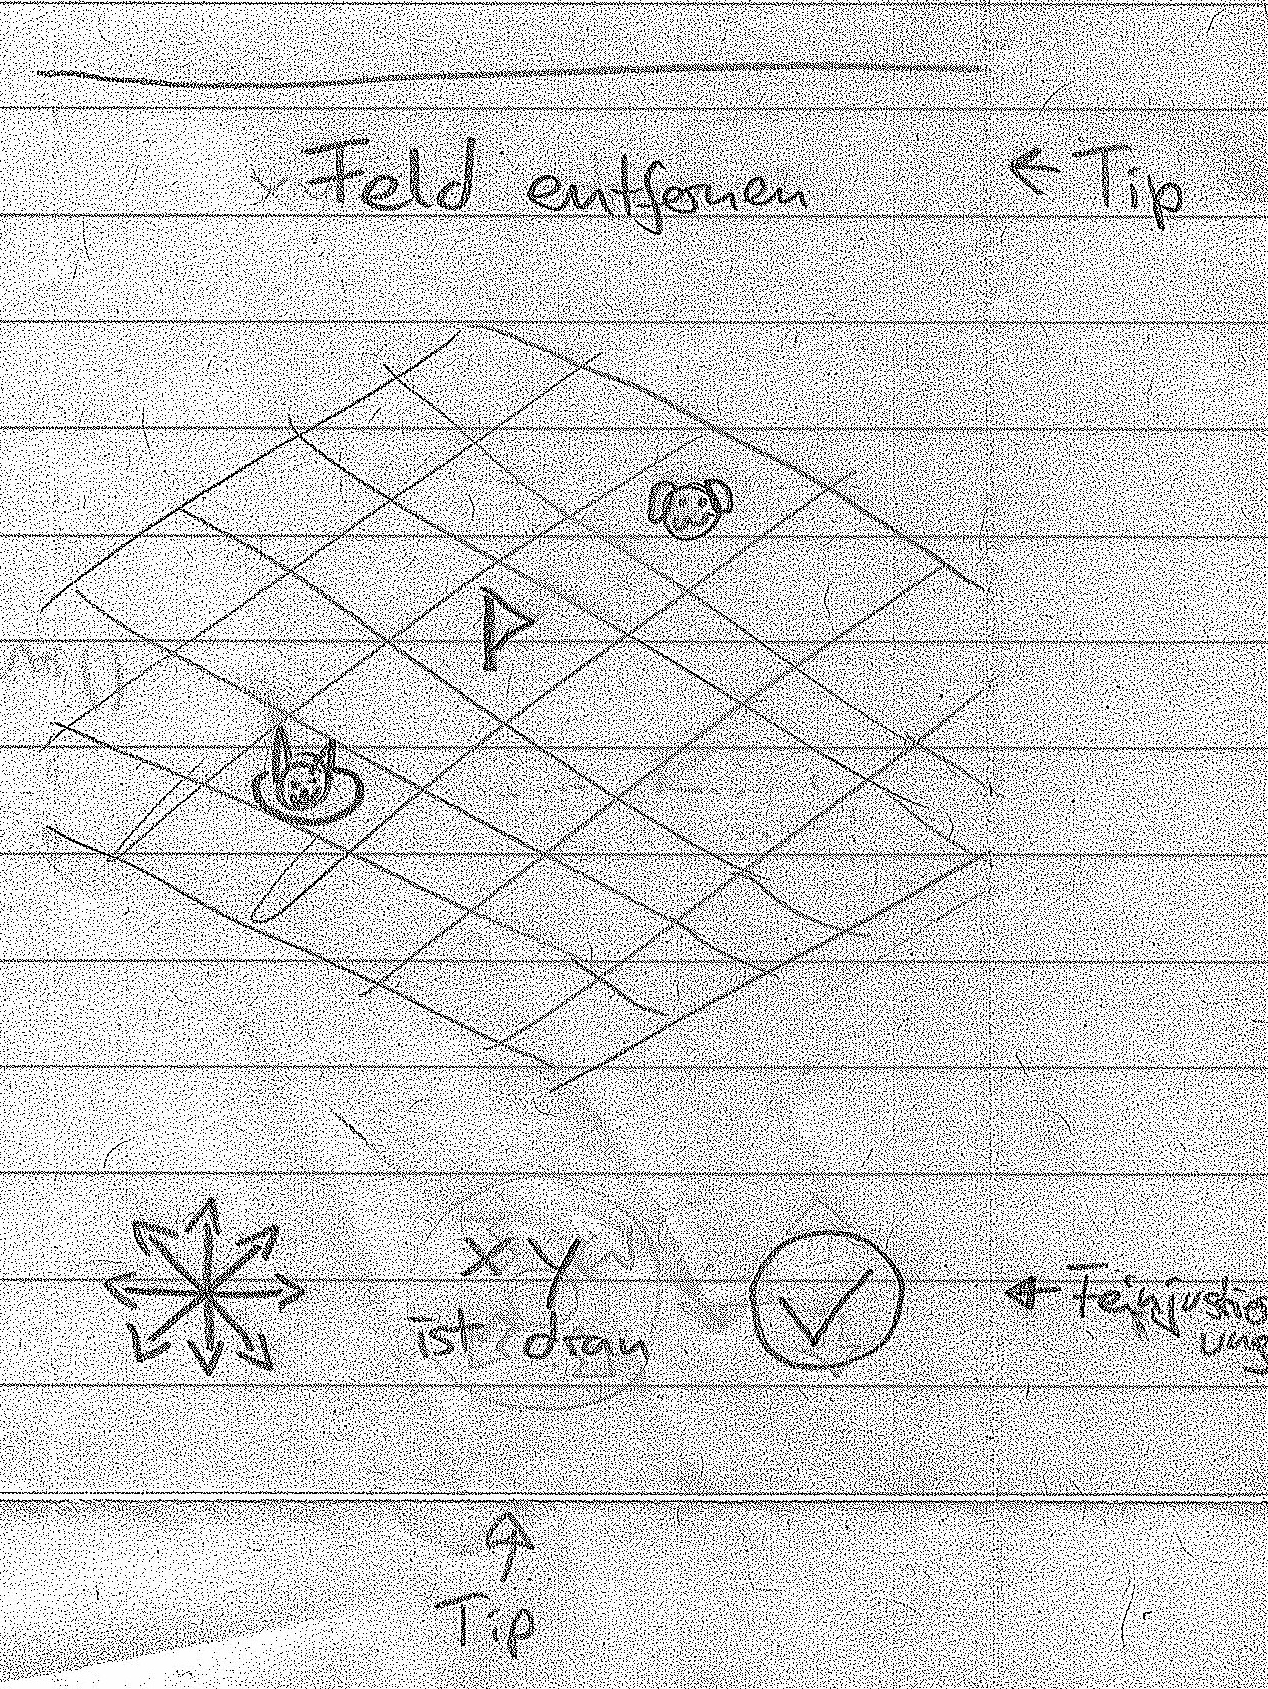 Feld entfernen
← Tip
XY
ist dran
← Feinjustier
ung
↑
Tip